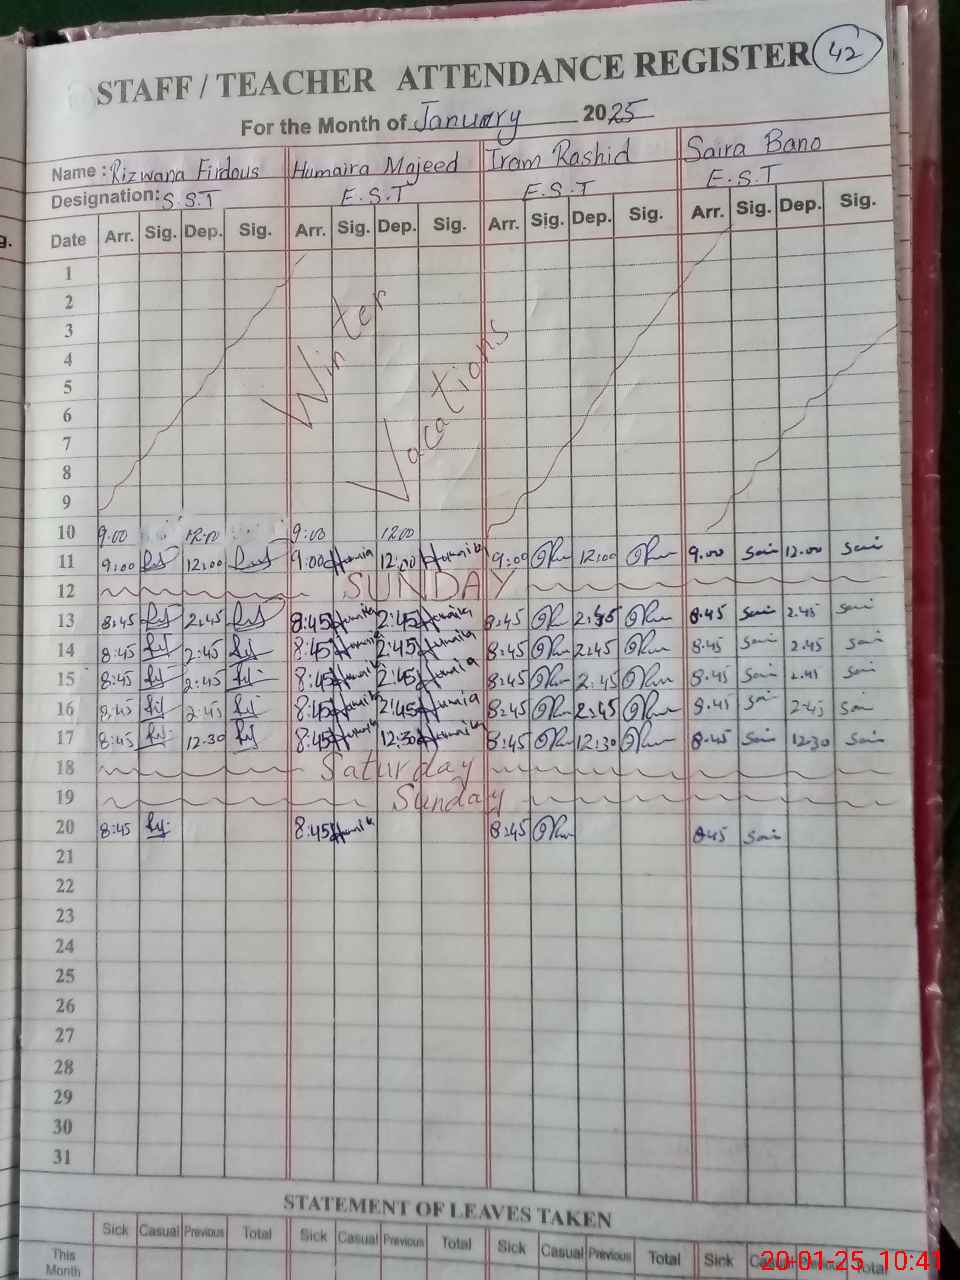 42
STAFF / TEACHER ATTENDANCE REGISTER
For the Month of January 2025
Name : Rizwana Firdous Humaira Majeed Iram Rashid Saira Bano
Designation: S.S.T E.S.T E.S.T E.S.T
g.
Date Arr. Sig. Dep. Sig. Arr. Sig. Dep. Sig. Arr. Sig. Dep. Sig. Arr. Sig. Dep. Sig.
1
2
3
4
5
6
7
8
9
Winter
Vacations
10 9.00 12.00 9:00 12.00
11 9:00 12:00 9:00 Humaira 12:00 Humaira 9:00 12:00 9.00 Sai 12.00 Sai
12 SUNDAY
13 8:45 2:45 8:45 Humaira 2:45 Humaira 8:45 2:45 8.45 Sai 2.45 Sai
14 8:45 2:45 8:45 Humaira 2:45 Humaira 8:45 2:45 8.45 Sai 2.45 Sai
15 8:45 2:45 8:45 Humaira 2:45 Humaira 8:45 2:45 8.45 Sai 2.45 Sai
16 8:45 2:45 8:45 Humaira 2:45 Humaira 8:45 2:45 8.45 Sai 2.45 Sai
17 8:45 12.30 8:45 Humaira 12:30 Humaira 8:45 12:30 8.45 Sai 12.30 Sai
18 Saturday
19 Sunday
20 8:45 8:45 Humaira 8:45 8.45 Sai
21
22
23
24
25
26
27
28
29
30
31
STATEMENT OF LEAVES TAKEN
Sick Casual Previous Total Sick Casual Previous Total Sick Casual Previous Total Sick Casual Previous Total
This
Month
20-01-25 10:41